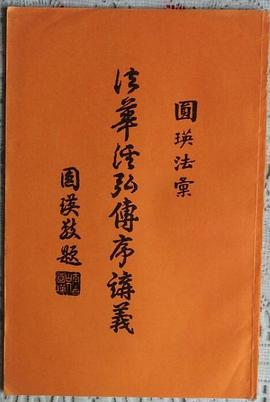 圓瑛法彙
法華經弘傳序講義
圓瑛敬題